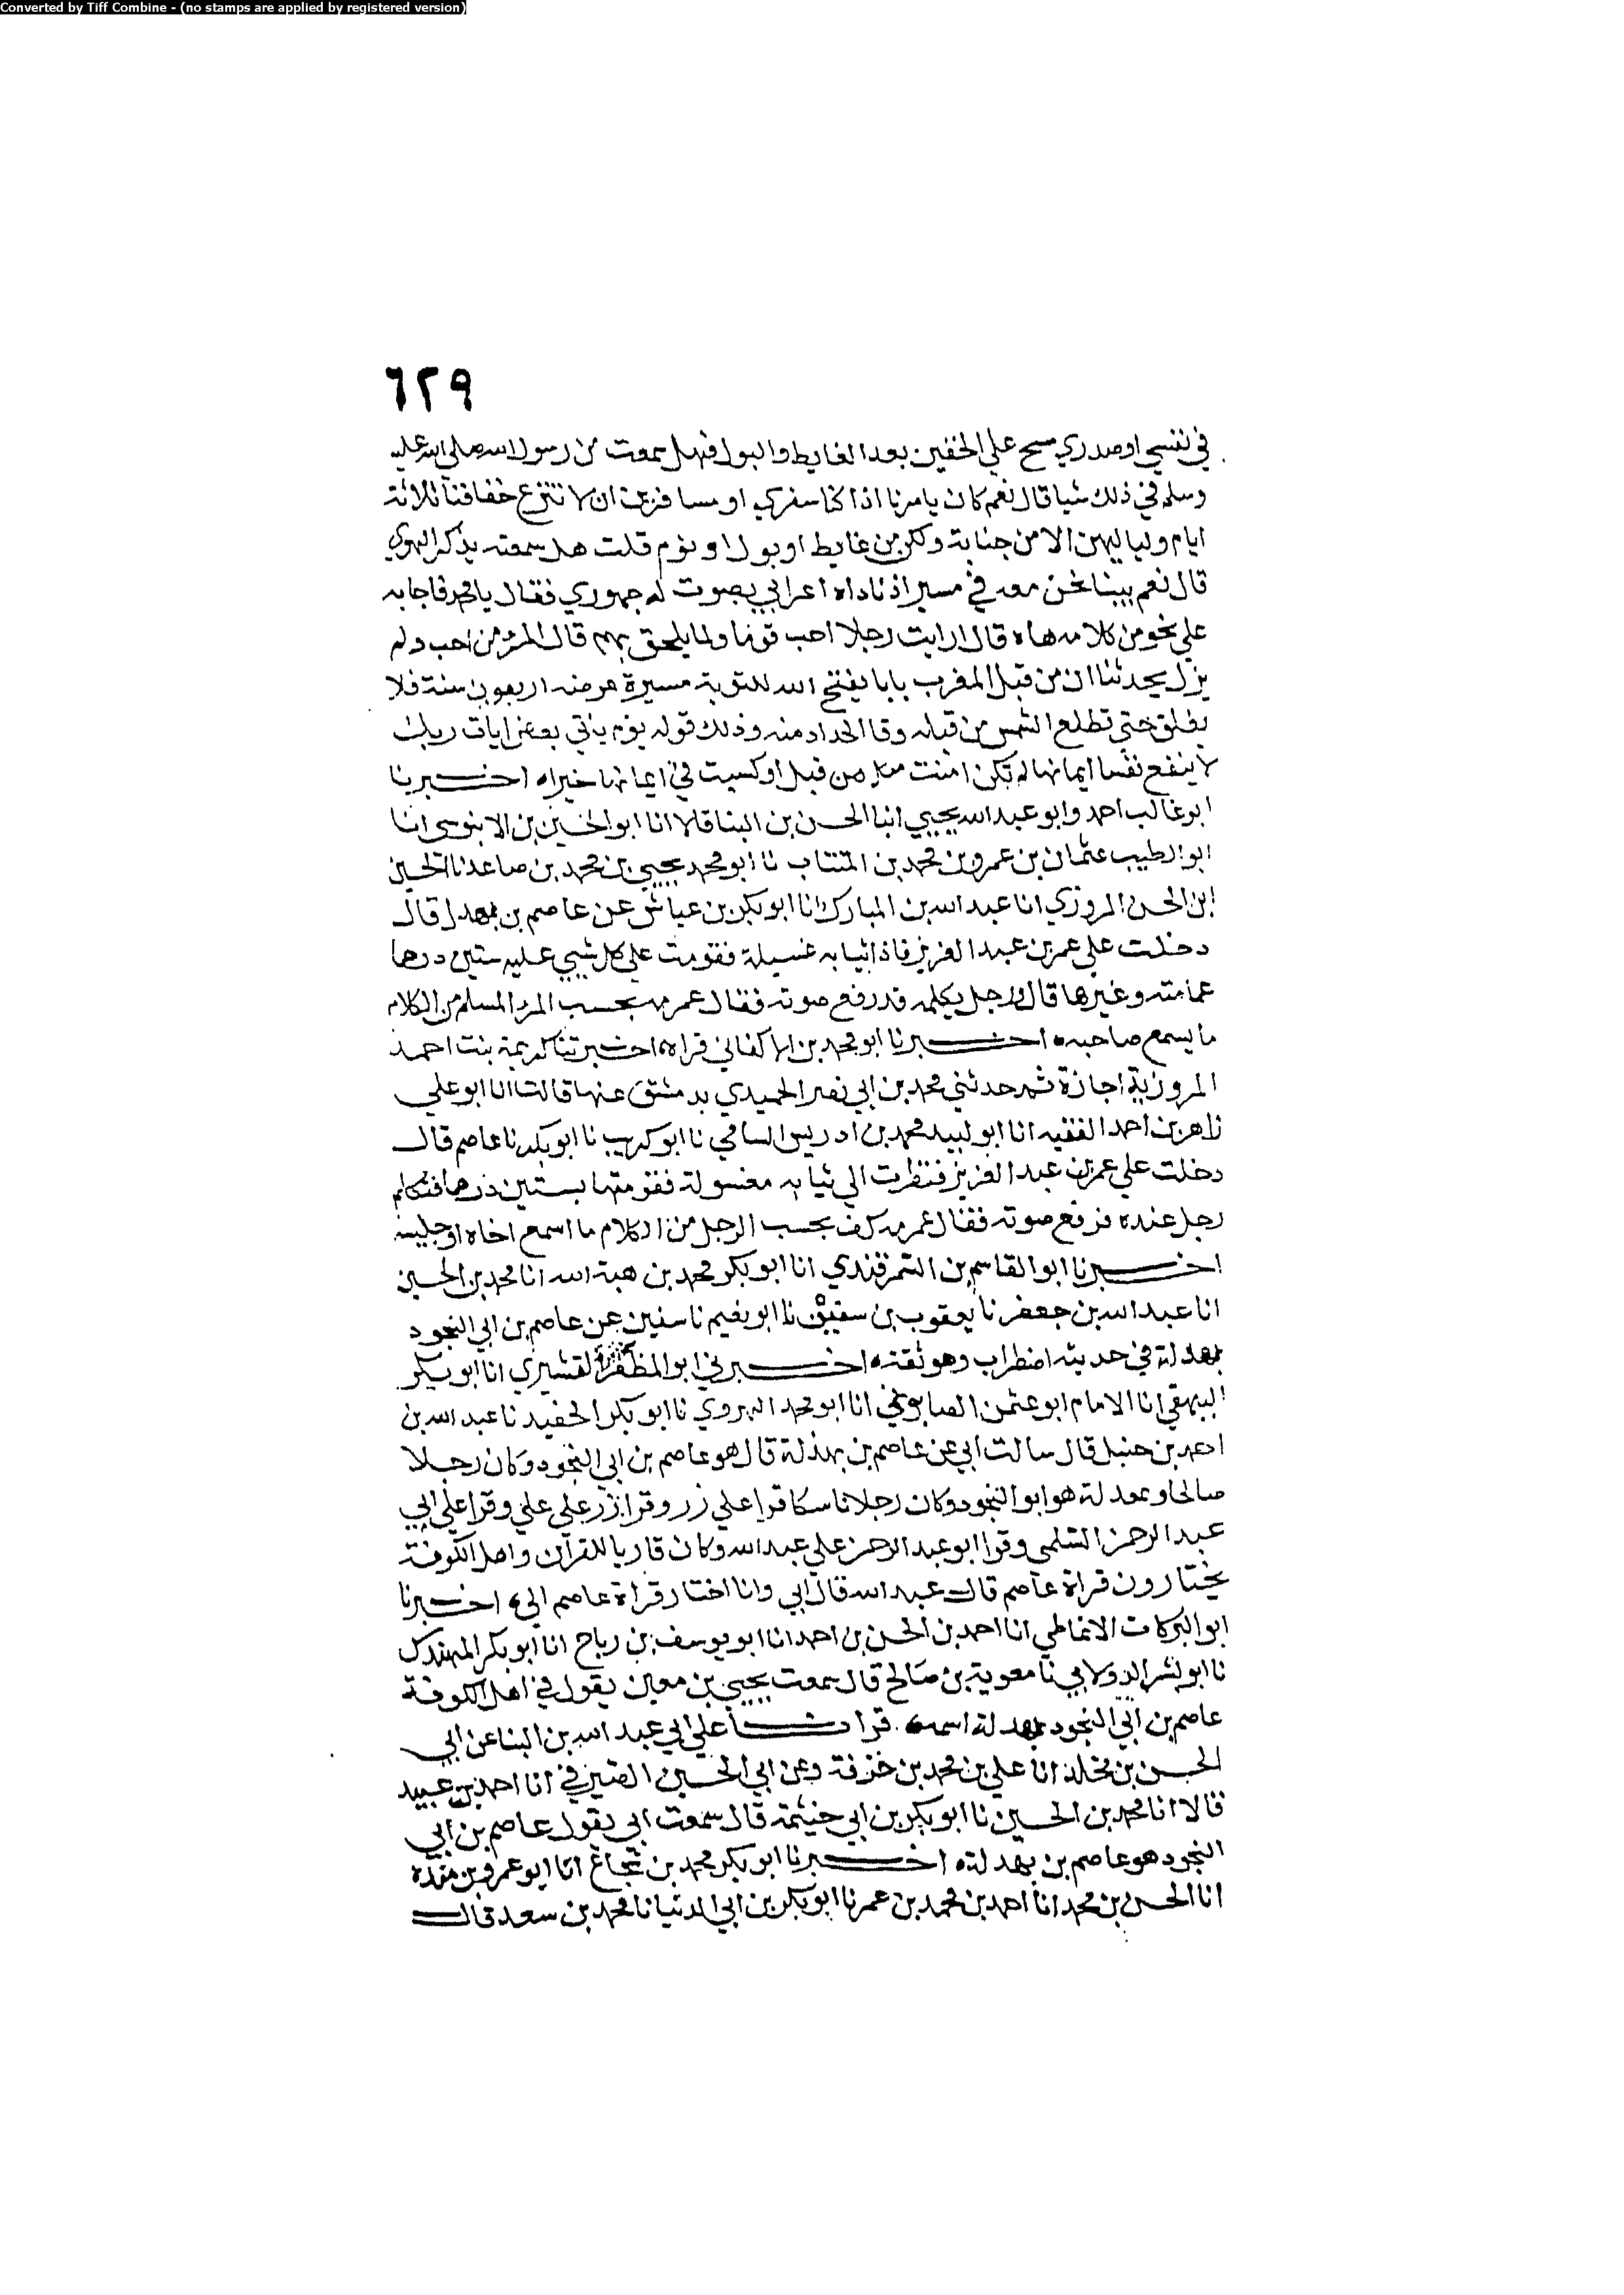 Converted by Tiff Combine - (no stamps are applied by registered version)
٦٢٩
في نفسي او صدري مسح علي الخفين بعد الغايط والبول فهل سمعت من رسول الله صلى الله عليه
وسلم في ذلك شيا قال نعم كان يامرنا اذا كنا سفرا او مسافرين ان لا ننزع خفافنا ثلاثة
ايام ولياليهن الا من جنابة ولكن من غايط او بول او نوم قلت هل سمعته يذكر الهوي
قال نعم بينا نحن معه في مسير اذ ناداه اعرابي بصوت له جهوري فقال يا محمد فاجابه
علي نحو من كلامه هاه قال ارايت رجلا احب قوما ولما يلحق بهم قال المرء من احب ولم
يزل يحدثنا ان من قبل المغرب بابا يفتح الله للتوبة مسيرة عرضه اربعون سنة فلا
يغلق حتي تطلع الشمس من قبله وذلك قوله يوم ياتي بعض ايات ربك
لا ينفع نفسا ايمانها لم تكن امنت من قبل او كسبت في ايمانها خيرا اخبرنا
ابو غالب احمد وابو عبد الله يحيي ابنا الحسن بن البنا قالا انا ابو الحسين بن الابنوسي انا
ابو الطيب عثمان بن عمرو بن محمد بن المنتاب نا ابو محمد يحيي بن محمد بن صاعد نا الحسين
ابن الحسن المروزي انا عبد الله بن المبارك انا ابو بكر بن عياش عن عاصم بن بهدل قال
دخلت علي عمر بن عبد العزيز فاذا ثيابه غسيلة فقومت علي كل شيي عليه ستين درهما
عمامته وغيرها قال ورجل يكلمه قد رفع صوته فقال عمر مه بحسب المرء المسلم من الكلام
ما يسمع صاحبه اخبرنا ابو محمد بن الاكفاني قراه اخبرتنا كريمة بنت احمد
المروزية اجازة ثم حدثني محمد بن ابي نصر الحميدي بدمشق عنها قالت انا ابو علي
زاهر بن احمد الفقيه انا ابو لبيد محمد بن ادريس السامي نا ابو كريب نا ابو بكر نا عاصم قال
دخلت علي عمر بن عبد العزيز فنظرت الي ثيابه مغسولة فقومتها بستين درهما فتكلم
رجل عنده فرفع صوته فقال عمر مه كف بحسب الرجل من الكلام ما اسمع اخاه او جليسه
اخبرنا ابو القاسم بن السمرقندي انا ابو بكر محمد بن هبة الله انا محمد بن الحسين
انا عبد الله بن جعفر نا يعقوب بن سفيان نا ابو نعيم نا سفين عن عاصم بن ابي النجود
بهدلة في حديثه اضطراب وهو ثقة اخبرني ابو المظفر القشيري انا ابو بكر
البيهقي انا الامام ابو عثمن الصابوني انا ابو محمد الهروي نا ابو بكر الحفيد نا عبد الله بن
احمد بن حنبل قال سالت ابي عن عاصم بن بهدلة قال هو عاصم بن ابي النجود وكان رجلا
صالحا وبهدلة هو ابو النجود وكان رجلا ناسكا قرا علي زر وقرا زر علي علي وقرا علي ابي
عبد الرحمن السلمي وقرا ابو عبد الرحمن علي عبد الله وكان قاريا للقران واهل الكوفة
يختارون قراة عاصم قال عبد الله قال ابي وانا اختار قراة عاصم الي اخبرنا
ابو البركات الانماطي انا احمد بن الحسن بن احمد انا ابو يوسف بن رباح انا ابو بكر المهندس
نا ابو بشر الدولابي نا معوية بن صالح قال سمعت يحيي بن معين يقول في اهل الكوفة
عاصم بن ابي النجود بهدلة اسمه قرات علي ابي عبد الله بن البنا عن ابي
الحسن بن مخلد انا علي بن محمد بن خزفة وعن ابي الحسين الصيرفي انا احمد بن عبيد
قالا انا محمد بن الحسين نا ابو بكر بن ابي خيثمة قال سمعت ابي يقول عاصم بن ابي
النجود هو عاصم بن بهدلة اخبرنا ابو بكر محمد بن شجاع انا ابو عمرو بن منده
انا الحسن بن محمد انا احمد بن محمد بن عمر نا ابو بكر بن ابي الدنيا نا محمد بن سعد قال